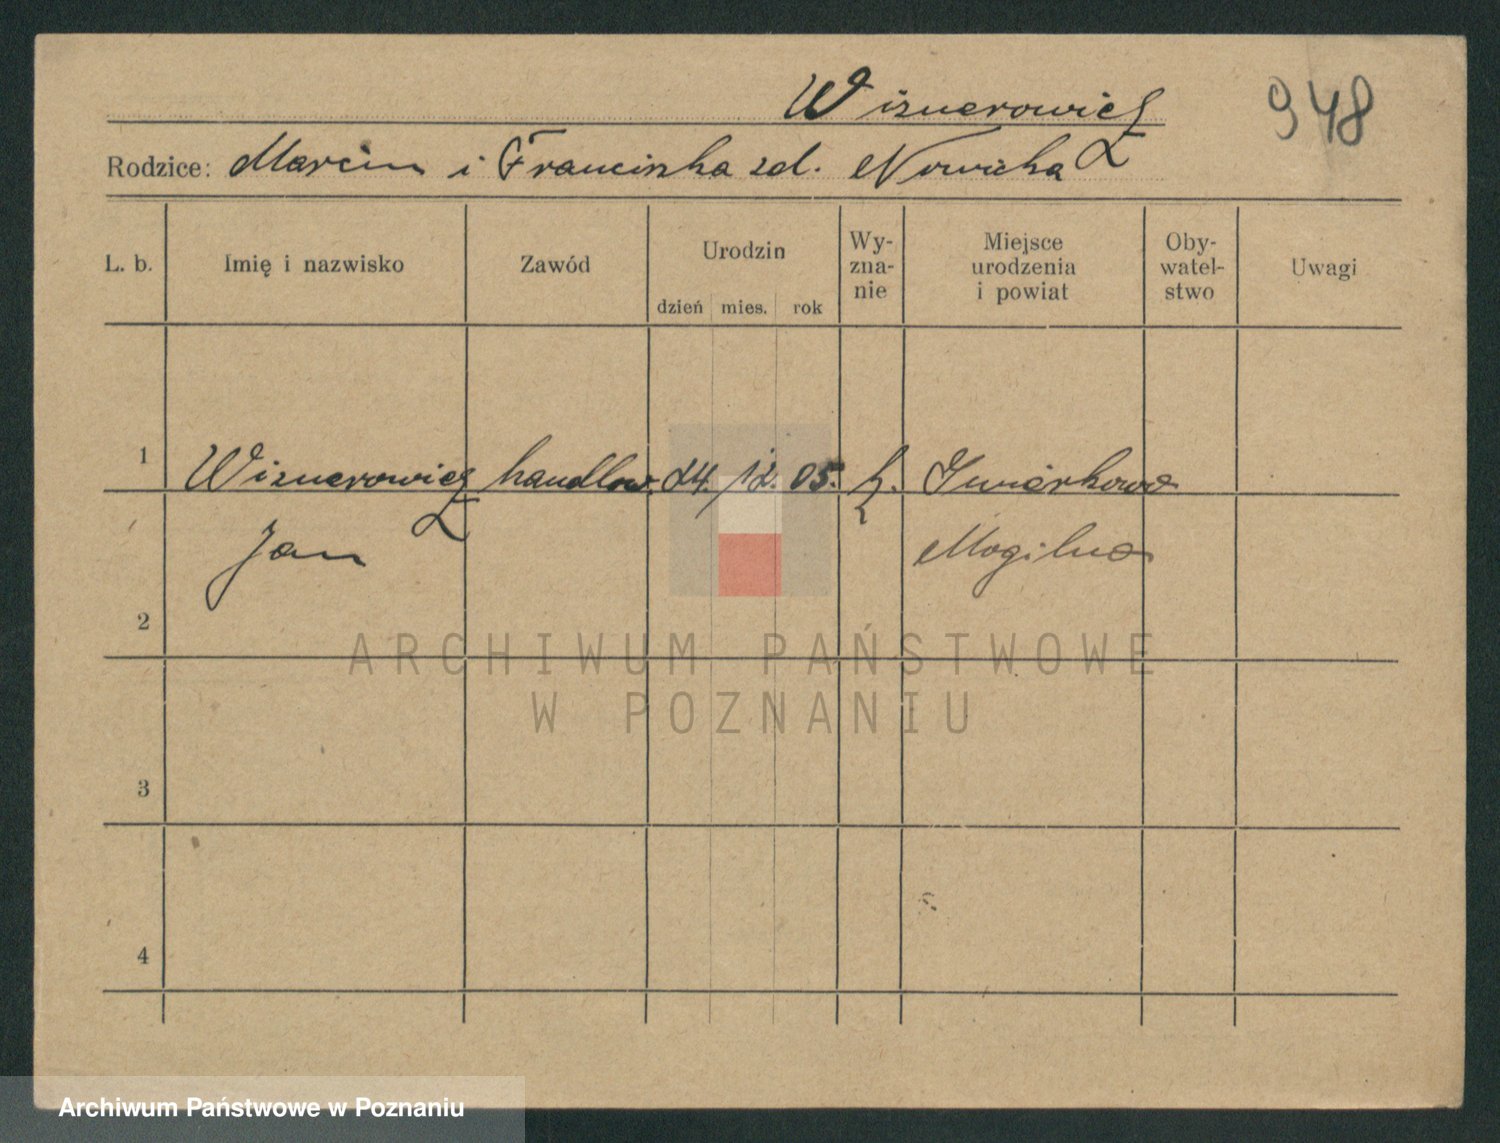 Wiznerowicz
948
Rodzice: Marcin i Franciszka zd. Nowicka
L. b. Imię i nazwisko Zawód Urodzin dzień mies. rok Wy-zna-nie Miejsce urodzenia i powiat Oby-watel-stwo Uwagi
1 Wiznerowicz handlow. 24. 12. 05. k.
Jan Mogilno
2
3
4
ARCHIWUM PAŃSTWOWE
W POZNANIU
Archiwum Państwowe w Poznaniu